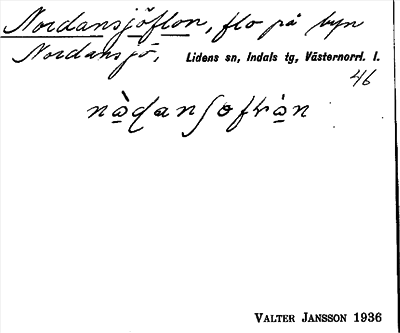 Nordansjöflon, flo på byn
Nordansjö, Lidens sn, Indals tg, Västernorrl. l.
46
VALTER JANSSON 1936